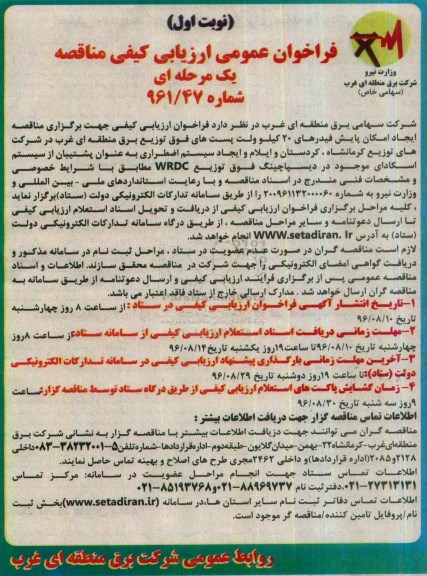 (نوبت اول)
فراخوان عمومی ارزیابی کیفی مناقصه
یک مرحله ای
شماره ۹۶۱/۴۷
وزارت نیرو
شرکت برق منطقه ای غرب
(سهامی خاص)
شرکت سهامی برق منطقه ای غرب در نظر دارد فراخوان ارزیابی کیفی جهت برگزاری مناقصه
ایجاد امکان پایش فیدرهای ۲۰ کیلو ولت پست های فوق توزیع برق منطقه ای غرب در شرکت
های توزیع کرمانشاه ، کردستان و ایلام و ایجاد سیستم اضطراری به عنوان پشتیبان از سیستم
اسکادای موجود در دیسپاچینگ فوق توزیع WRDC مطابق با شرایط خصوصی
و مشخصات فنی مندرج در اسناد مناقصه و با رعایت استانداردهای ملی - بین المللی و
وزارت نیرو به شماره ۲۰۰۹۶۱۱۳۲۰۰۰۰۶۰ را از طریق سامانه تدارکات الکترونیکی دولت (ستاد)برگزار نماید
. کلیه مراحل برگزاری فراخوان ارزیابی کیفی از دریافت و تحویل اسناد استعلام ارزیابی کیفی
تا ارسال دعوتنامه و سایر مراحل مناقصه ، از طریق درگاه سامانه تدارکات الکترونیکی دولت
(ستاد) به آدرس WWW.setadiran. Ir انجام خواهد شد.
لازم است مناقصه گران در صورت عدم عضویت در ستاد ، مراحل ثبت نام در سامانه مذکور و
دریافت گواهی امضای الکترونیکی را جهت شرکت در مناقصه محقق سازند. اطلاعات و اسناد
مناقصه عمومی پس از برگزاری فرآیند ارزیابی کیفی و ارسال دعوتنامه از طریق سامانه به
مناقصه گران ارسال خواهد شد . مدارک ارسالی خارج از ستاد فاقد اعتبار می باشد.
۱-تاریخ انتشار آگهی فراخوان ارزیابی کیفی در ستاد : از ساعت ۸ روز چهارشنبه
تاریخ ۹۶/۰۸/۱۰
۲-مهلت زمانی دریافت اسناد استعلام ارزیابی کیفی از سامانه ستاد:از ساعت ۸روز
چهارشنبه تاریخ ۹۶/۰۸/۱۰تا ساعت ۱۹روز یکشنبه تاریخ ۹۶/۰۸/۱۴
۳-آخرین مهلت زمانی بارگذاری پیشنهاد ارزیابی کیفی در سامانه تدارکات الکترونیکی
دولت (ستاد):تا ساعت ۱۹روز دوشنبه تاریخ ۹۶/۰۸/۲۹
۴- زمان گشایش پاکت های استعلام ارزیابی کیفی از طریق درگاه ستاد توسط مناقصه گزار:ساعت
۹ روز سه شنبه تاریخ ۹۶/۰۸/۳۰
اطلاعات تماس مناقصه گزار جهت دریافت اطلاعات بیشتر :
مناقصه گران می توانند جهت دریافت اطلاعات بیشتر با مناقصه گزار به نشانی شرکت برق
منطقه‌ای‌غرب-کرمانشاه-۲۲بهمن-میدان‌گلایون-طبقه‌دوم-اداره‌قراردادها-شماره‌تلفن۵-۰۸۳-۳۸۲۳۲۰۰۱داخلی
۲۱۲۸و۲۰۸۵(اداره قراردادها)و داخلی ۲۴۶۲مجری طرح های اصلاح و بهینه تماس حاصل نمایند.
اطلاعات تماس ستاد جهت انجام مراحل عضویت در سامانه: مرکز تماس
۲۷۳۱۳۱۳۱-۰۲۱دفترثبت نام ۸۸۹۶۹۷۳۷-۰۲۱و۸۵۱۹۳۷۶۸-۰۲۱
اطلاعات تماس دفاتر ثبت نام سایر استان ها،در سامانه (www.setadiran.ir)بخش ثبت
نام/پروفایل تامین کننده/مناقصه گر موجود است.
روابط عمومی شرکت برق منطقه ای غرب